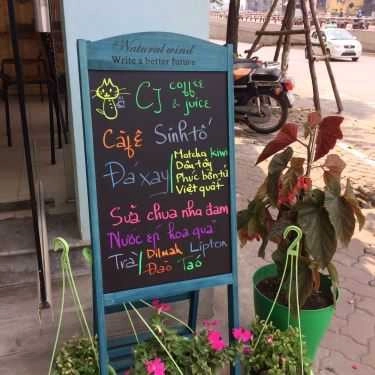 Natural wind
Write a better future
CJ coffee & juice
Cafê Sinh tố
Đá xay / Matcha kiwi
Dâu tây
Phúc bồn tử
Việt quất
Sữa chua nha đam
Nước ép hoa quả
Trà / Dilmah Lipton
Đào Táo